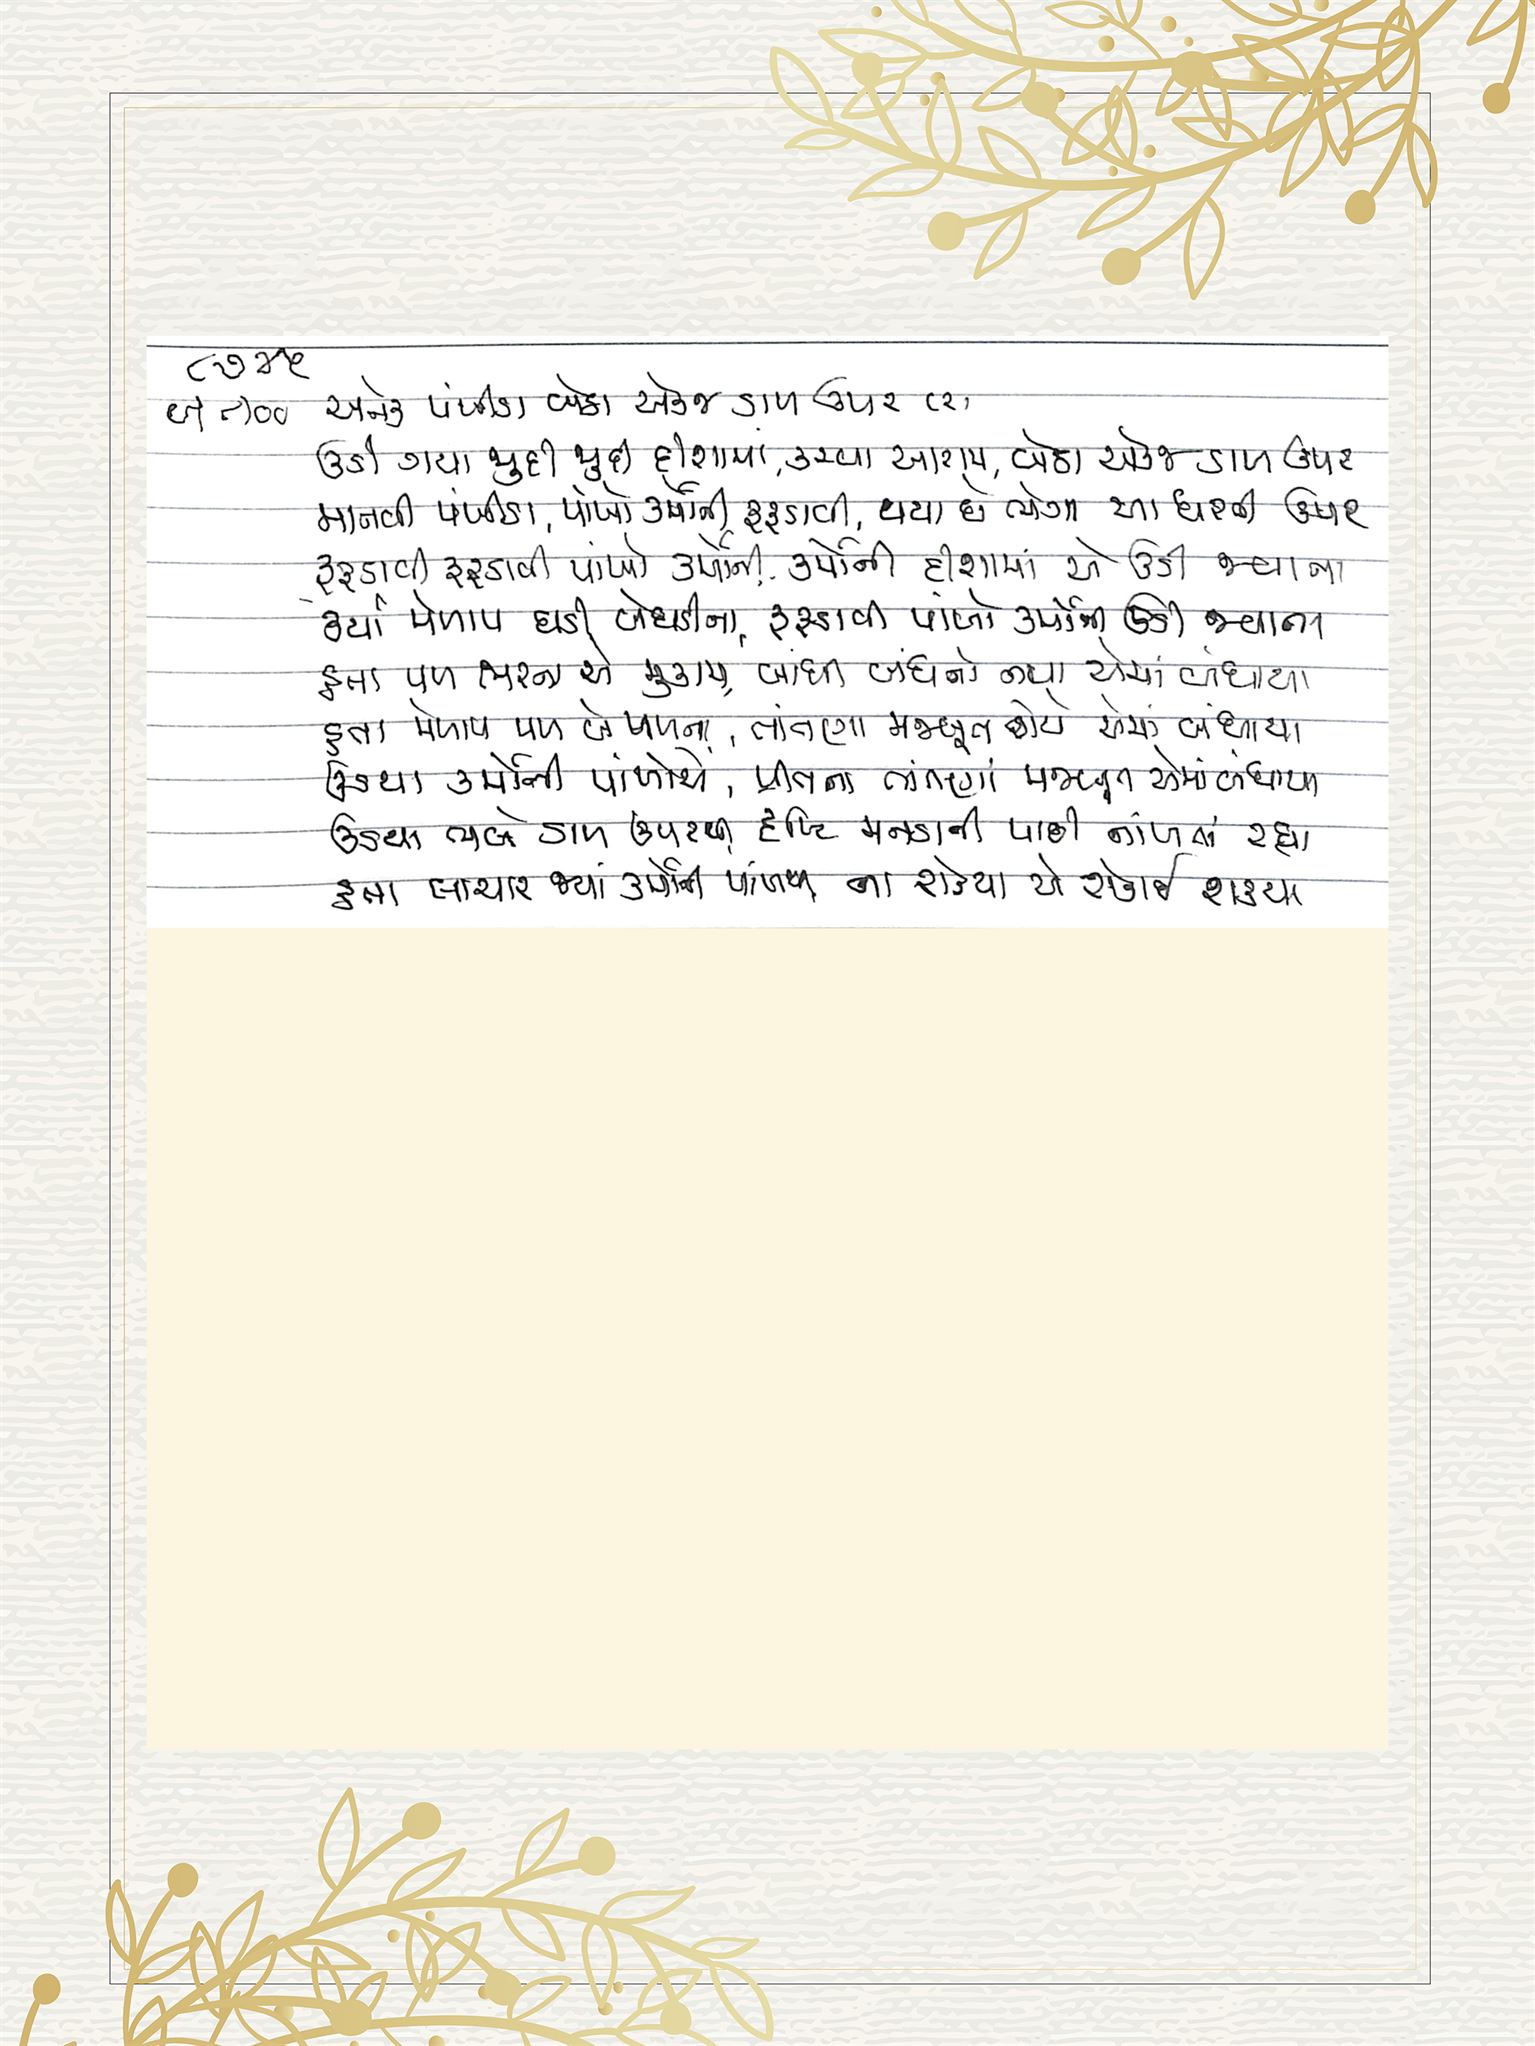 ૮૭૪૫
અનેક પંખીડા બેઠા એકજ ડાળ ઉપર (૨)
ઉડી ગયા જુદી જુદી દીશામાં, કરવા આરામ, બેઠા એકજ ડાળ ઉપર
માનવી પંખીડા, પાંખો કર્મોની ફફડાવી, થયા છે ભેગા આ ધરતી ઉપર
ફફડાવી ફફડાવી પાંખો કર્મોની, કર્મોની દીશામાં એ ઉડી જવાના
કર્યા મેળાપ ઘડી બેઘડીના, ફફડાવી પાંખો કર્મોની ઉડી જવાના
હતા પળ ભરના એ મુકામ, બાંધી બંધનો નવા એમાં બંધાયા
હતા મેળાપ પળ બે પળના, તાંતણા મજબૂત બન્યા એમાં બંધાયા
ઉડયા કર્મોની પાંખોએ, પ્રીતના તાંતણાં મજબૂત એમાં બંધાયા
ઉડયા ભલે ડાળ ઉપરથી, દૃષ્ટિ મનડાની પાછી નાંખતાં રહ્યા
હતા લાચાર જ્યાં કર્મોની પાંખથી, ના રોકાયા એ રોકાઈ શકયા